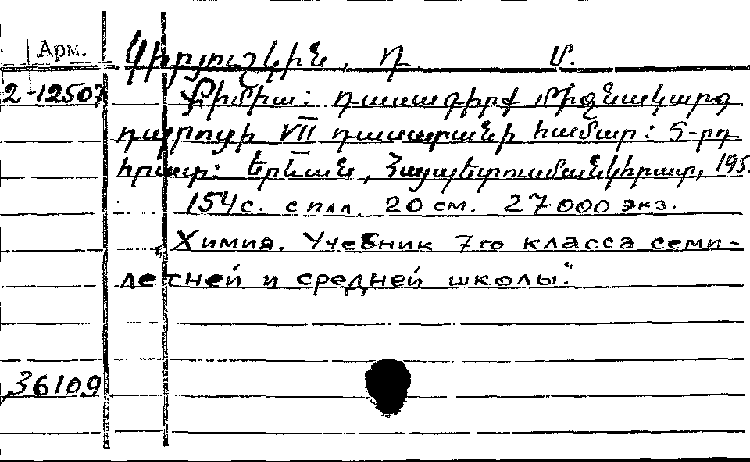 Арм.
Կիրյուշկին, Դ. Մ.
2-12507
Քիմիա: Դասագիրք միջնակարգ
դպրոցի VII դասարանի համար: 5-րդ
հրատ: Երևան, Հայպետուսմանկհրատ, 195
154 с. с илл. 20 см. 27000 экз.
„Химия. Учебник 7го класса семи-
летней и средней школы."
36109